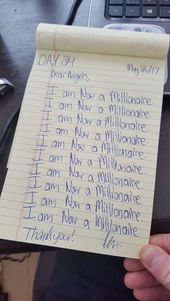 DAY 34
May 26/17
Dear Angels,
I am Now a Millionaire.
I am Now a Millionaire.
I am Now a Millionaire.
I am Now a Millionaire.
I am Now a Millionaire.
I am Now a Millionaire.
I am Now a Millionaire.
I am Now a Millionaire.
I am Now a Millionaire.
I am Now a Millionaire.
Thank you!